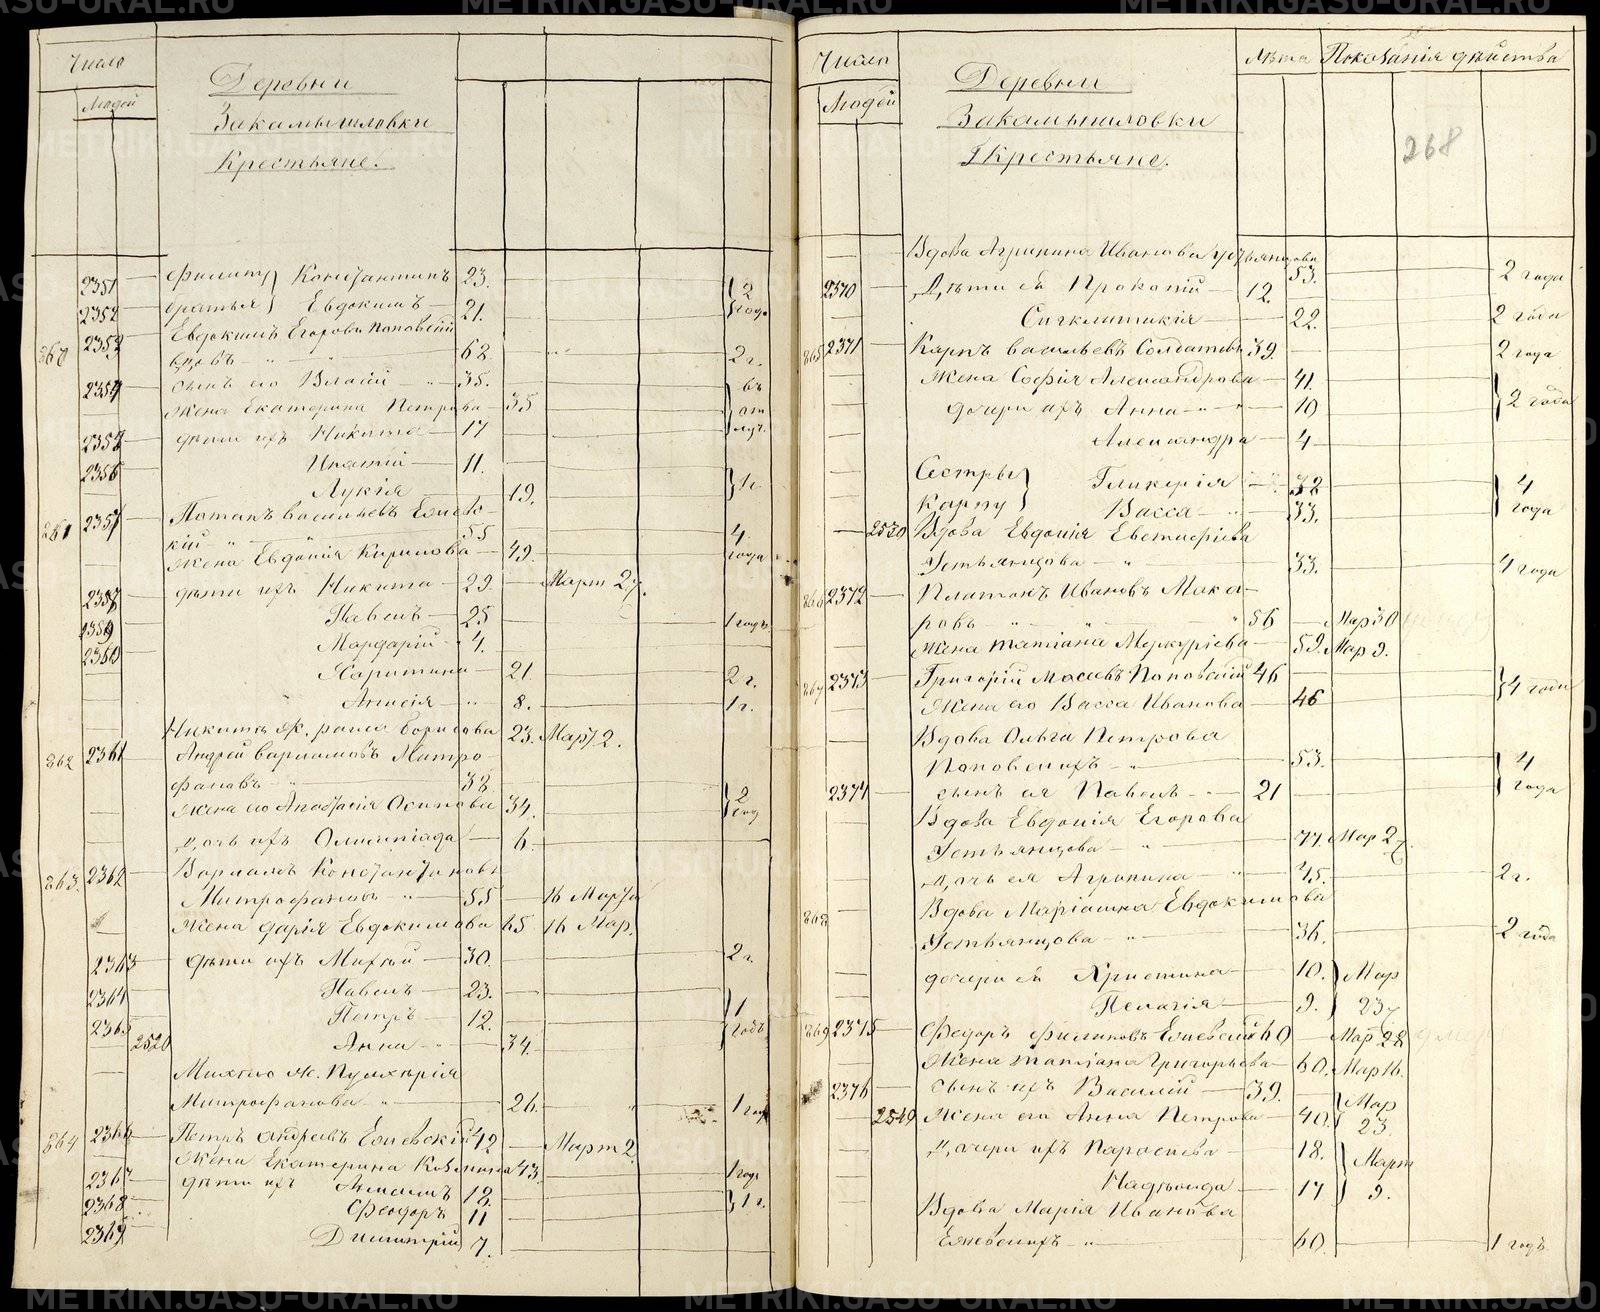 Число
Людей
Деревни
Закамышловки
Крестьяне.
2351 Филипъ Константинъ 23.
2352 братья Евдокимъ 21. 2 года
Евдокимъ Егоровъ Поповскій
2353 вдовъ 62 2 г.
2354 сынъ его Власій 35.
жена Екатерина Петрова 35
дѣти ихъ Никита 17
2356 Ипатій 11.
Лукія 19. 1 г.
861 2357 Потапъ Васильевъ
кій 55 4
жена Евдокія Кирилова 49. года
дѣти ихъ Никита 29. Март 27.
2359 Павелъ 25 1 годъ
2360 Мардарій 4.
Харитина 21. 2 г.
Анисія 8. 1 г.
Никиты ж. Раиса Борисова 23. Март 2.
862 2361 Андрей Варламовъ Митро-
фановъ 38.
жена его Анастасія Осипова 34. 2 год
дочь ихъ Олимпіада 6.
863. 2362 Варламъ Константиновъ
Митрофановъ 55 16 Марта
жена Дарія Евдокимова 65 16 Мар.
2363 дѣти ихъ Михаил 30. 2 г.
2364 Павелъ 23. 1
2365 Петръ 12. годъ
2520 Анна 34.
Михаила ж. Пульхерія
Митрофанова 26. 1 год
864 2366 Петръ Андреевъ 42 Март 2.
жена Екатерина 43. 1 годъ
2367 дѣти ихъ 18.
2368 Феодоръ 11 1 г.
2369 Димитрій 7.
Число
Людей
Деревни
Закамышловки
Крестьяне.
Лѣта
Показанія дѣйства
268
Вдова Агрипина Иванова Устьянцова 53. 2 года
2370 Дѣти ея Прокопій 12.
Синклитикія 22. 2 года
865 2371 Карпъ Васильевъ Солдатовъ 39. 2 года
жена Софія Александрова 41.
дочери ихъ Анна 10 2 года
Александра 4
Сестры Гликерія 38 4
Карпу Васса 33. года
2530 Вдова Евдокія Евстафіева
Устьянцова 33. 4 года
866 2372 Платонъ Ивановъ Мака-
ровъ 56 Мар 30
жена Татіана Меркуріева 59. Мар 9.
867 2373 Григорій Поповскій 46
жена его Васса Иванова 46 4 года
Вдова Ольга Петрова
Поповскихъ 53. 4
2374 сынъ ея Павелъ 21 года
Вдова Евдокія Егорова
Устьянцова 77. Мар 27.
дочь ея Агрипина 45. 2 г.
868 Вдова Маріамна Евдокимова
Устьянцова 36. 2 года
дочери ея Христина 10. Мар
Пелагія 9. 23
869 2375 Феодоръ Филиповъ 60 Мар 28
жена Татіана Григорьева 60. Мар 16.
2376 сынъ ихъ Василій 39. Мар
2549 жена его Анна Петрова 40. 23.
дочери ихъ Параскева 18. Март
Надежда 17 9.
Вдова Марія Иванова
60. 1 годъ
METRIKI.GASU-URAL.RU